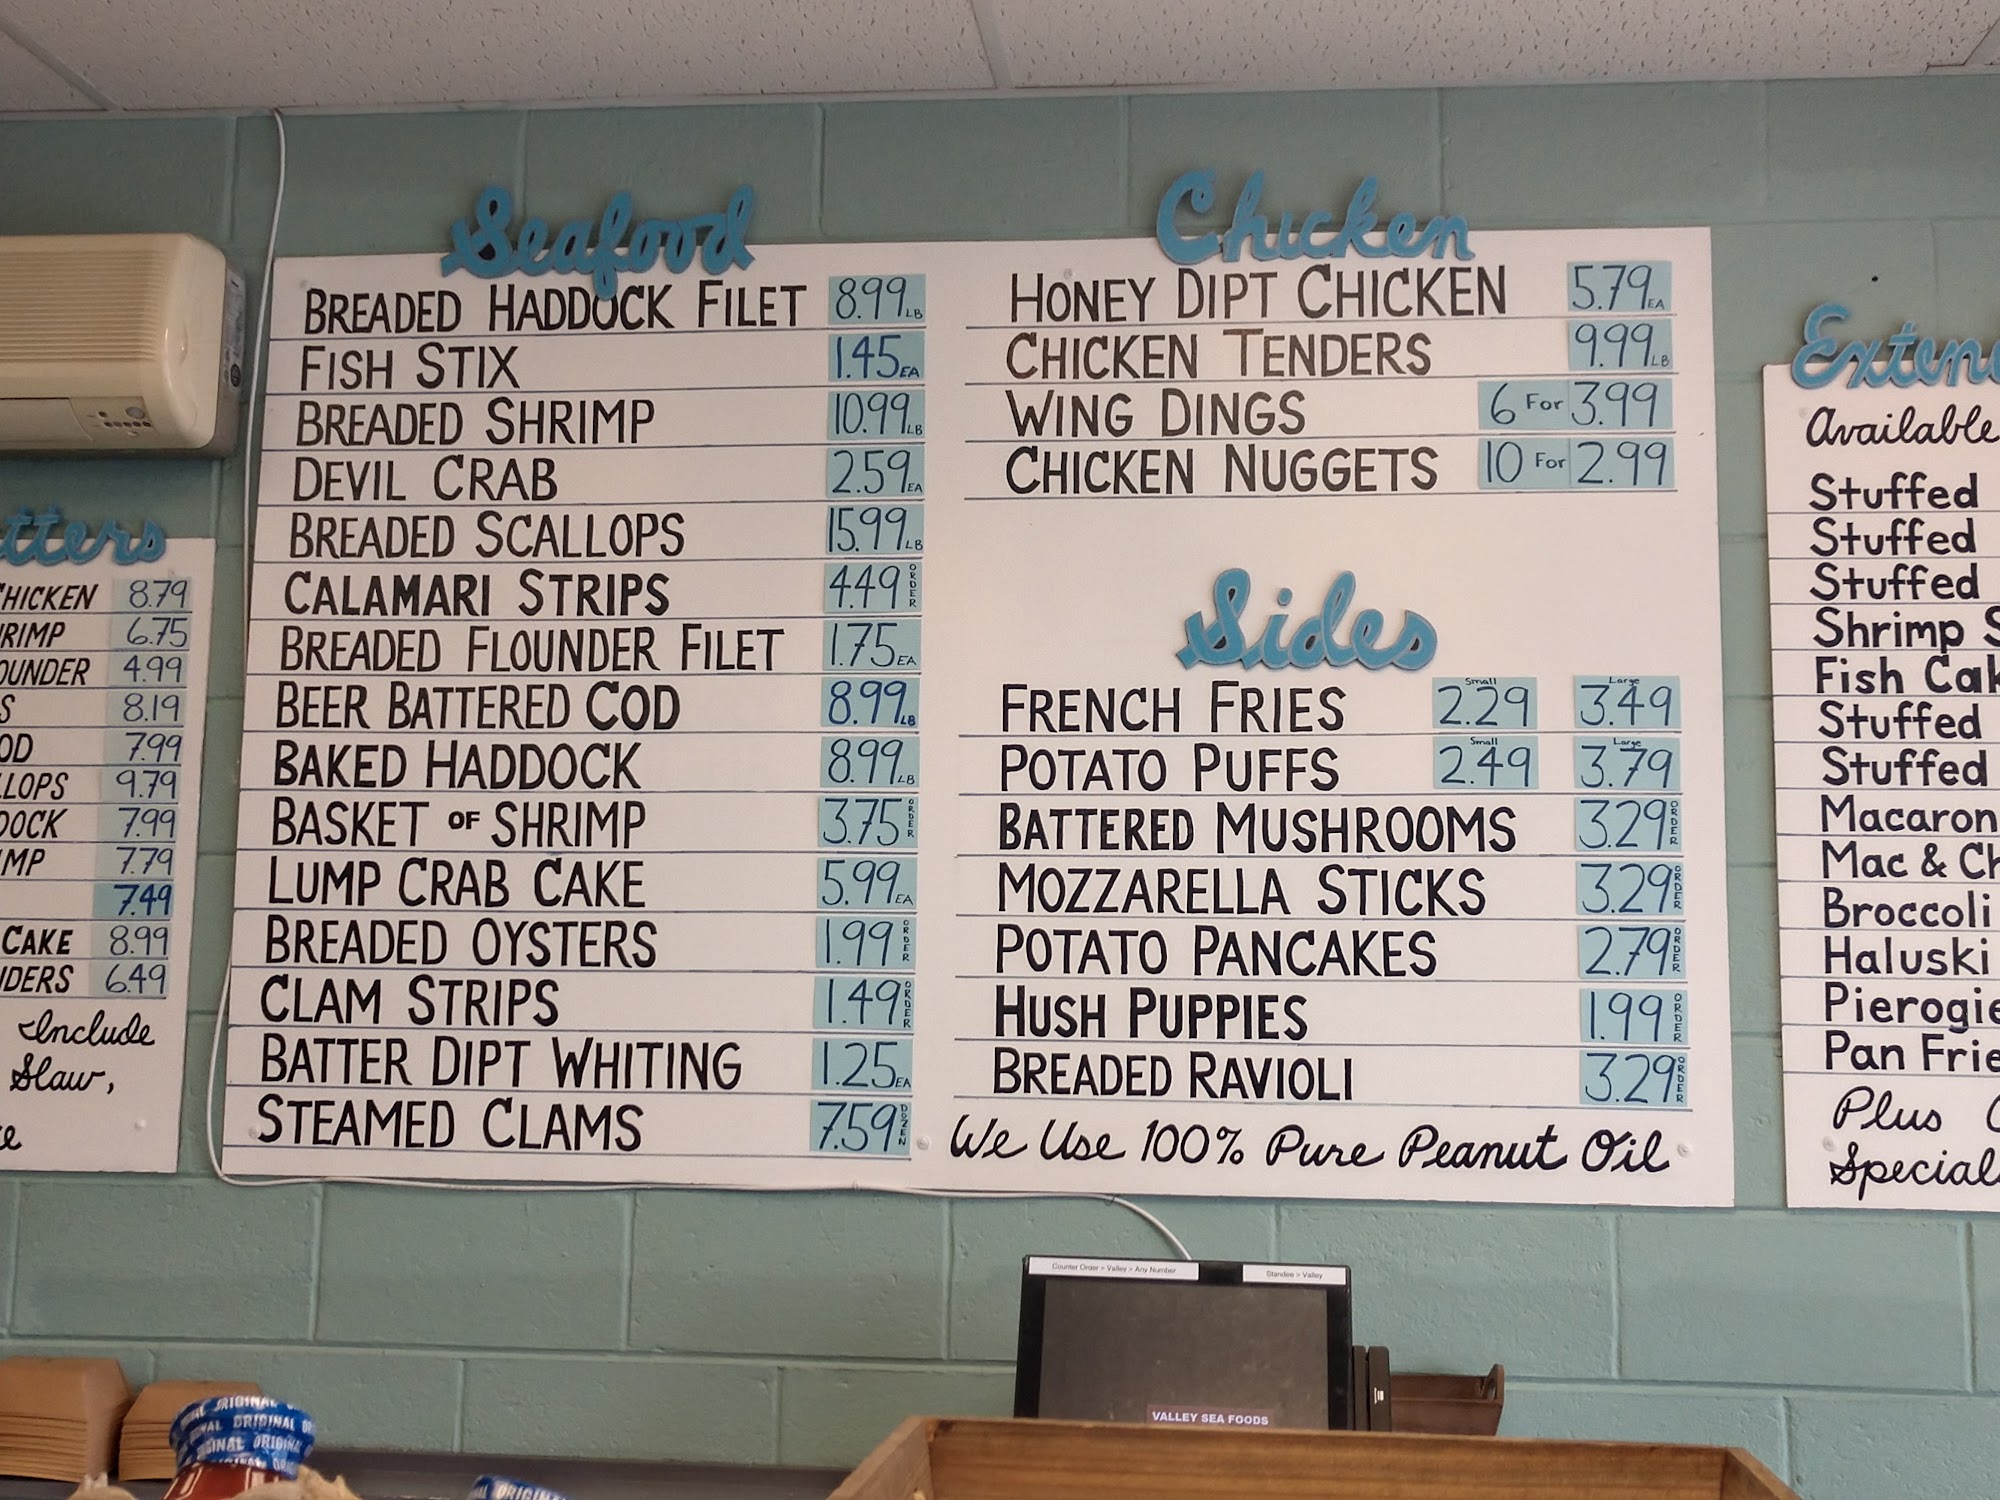 Seafood
BREADED HADDOCK FILET 8.99 LB
FISH STIX 1.45 EA
BREADED SHRIMP 10.99 LB
DEVIL CRAB 2.59 EA
BREADED SCALLOPS 15.99 LB
CALAMARI STRIPS 4.49 ORDER
BREADED FLOUNDER FILET 1.75 EA
BEER BATTERED COD 8.99 LB
BAKED HADDOCK 8.99 LB
BASKET OF SHRIMP 3.75 ORDER
LUMP CRAB CAKE 5.99 EA
BREADED OYSTERS 1.99 ORDER
CLAM STRIPS 1.49 ORDER
BATTER DIPT WHITING 1.25 EA
STEAMED CLAMS 7.59 DOZEN
Chicken
HONEY DIPT CHICKEN 5.79 EA
CHICKEN TENDERS 9.99 LB
WING DINGS 6 For 3.99
CHICKEN NUGGETS 10 For 2.99
Sides
FRENCH FRIES Small 2.29 Large 3.49
POTATO PUFFS Small 2.49 Large 3.79
BATTERED MUSHROOMS 3.29 ORDER
MOZZARELLA STICKS 3.29 ORDER
POTATO PANCAKES 2.79 ORDER
HUSH PUPPIES 1.99 ORDER
BREADED RAVIOLI 3.29 ORDER
We Use 100% Pure Peanut Oil
tters
HICKEN 8.79
RIMP 6.75
OUNDER 4.99
S 8.19
OD 7.99
LLOPS 9.79
DOCK 7.99
MP 7.79
7.49
CAKE 8.99
NDERS 6.49
Include
Slaw,
Exten
Available
Stuffed
Stuffed
Stuffed
Shrimp S
Fish Cak
Stuffed
Stuffed
Macaron
Mac & Ch
Broccoli
Haluski
Pierogie
Pan Frie
Plus
Special
Counter Order > Valley > Any Number
Standee > Valley
VALLEY SEA FOODS
ORIGINAL
ORIGINAL
ORIGINAL